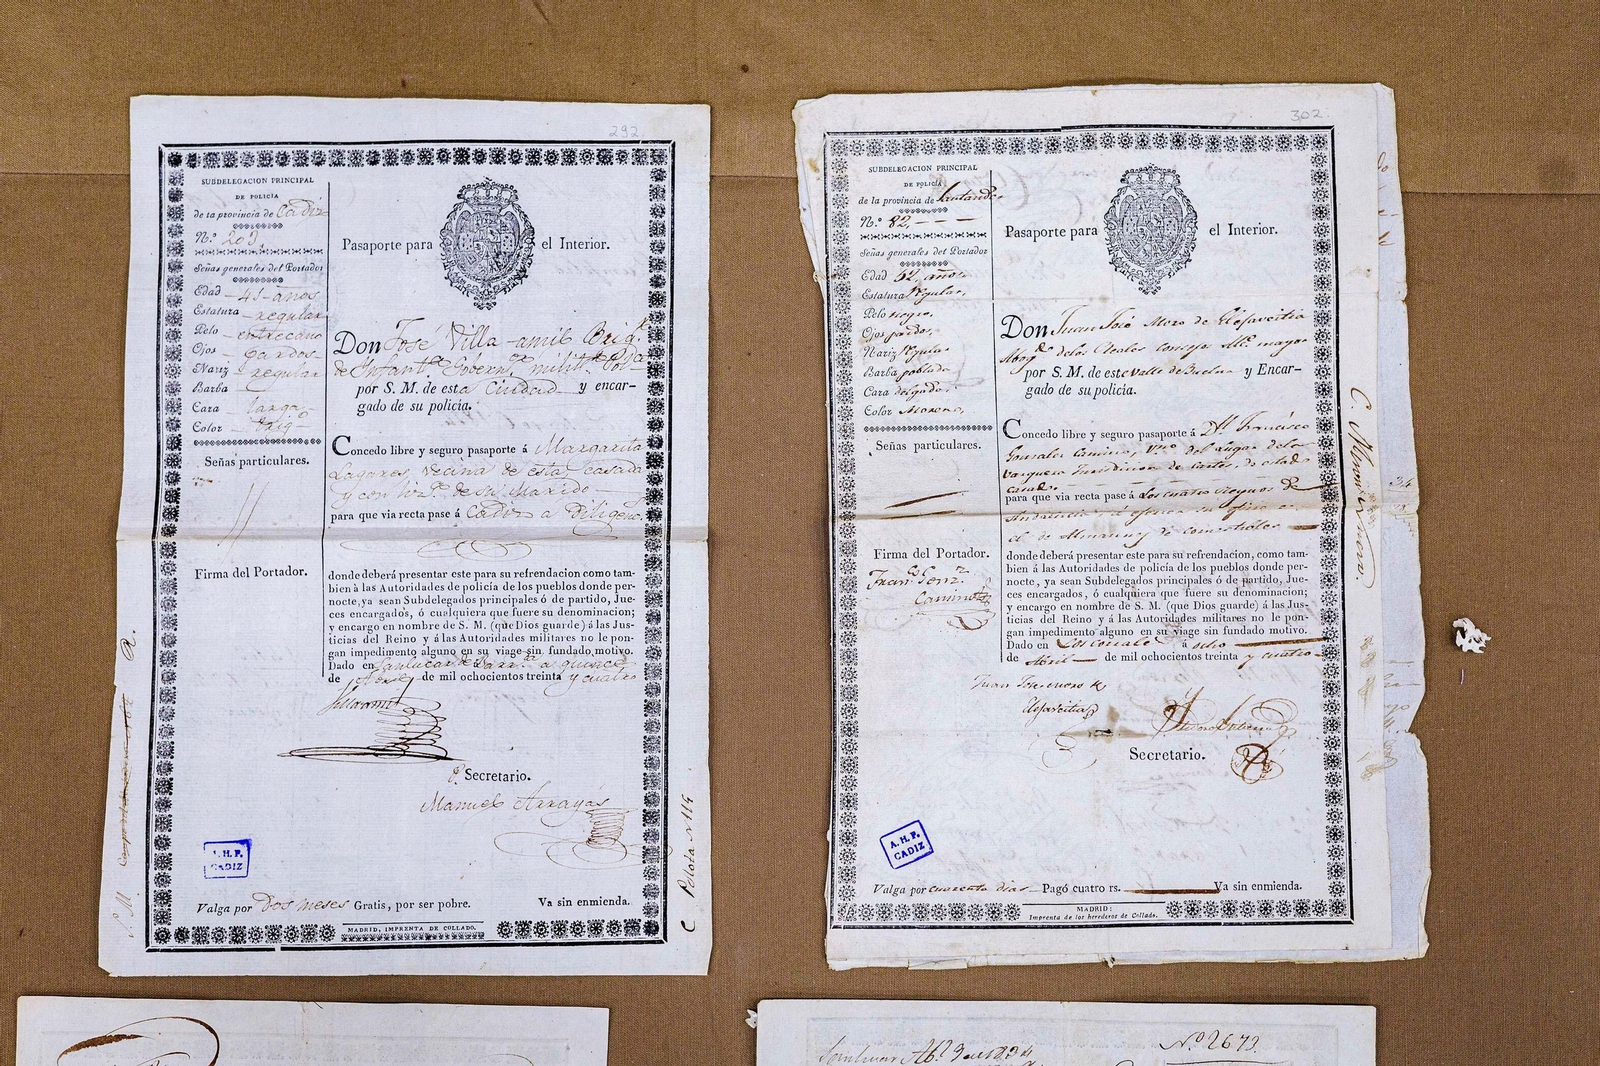 292
SUBDELEGACION PRINCIPAL
DE POLICIA
de la provincia de Cadiz
N.º 203.
Señas generales del Portador
Edad 45 años
Estatura regular
Pelo entrecano
Ojos Pardos
Nariz regular
Barba
Cara larga
Color trig.
Señas particulares.
Firma del Portador.
Pasaporte para el Interior.
Don José Villa-amil Brig.
de Infant. Govern. milit.
por S. M. de esta Ciudad y encar-
gado de su policía.
Concedo libre y seguro pasaporte á Margarita
Lagares, vecina de esta casada
y con liz.ª de su Marido
para que via recta pase á Cadiz a Diligenc.
donde deberá presentar este para su refrendacion como tam-
bien à las Autoridades de policía de los pueblos donde per-
nocte, ya sean Subdelegados principales ó de partido, Jue-
ces encargados, ó cualquiera que fuere su denominacion;
y encargo en nombre de S. M. (que Dios guarde) á las Jus-
ticias del Reino y á las Autoridades militares no le pon-
gan impedimento alguno en su viage sin fundado motivo.
Dado en Sanlucar de Barr.ª a quince
de de mil ochocientos treinta y cuatro
Villaamil
P. Secretario.
Manuel Arrayás
A. H. P.
CADIZ
Valga por Dos meses Gratis, por ser pobre. Va sin enmienda.
MADRID, IMPRENTA DE COLLADO.
A.
C Pelota N 114
302
SUBDELEGACION PRINCIPAL
DE POLICIA
de la provincia de Santander
N.º 82,
Señas generales del Portador
Edad 52 años
Estatura Regular,
Pelo negro,
Ojos pardos,
Nariz Regular
Barba poblada
Cara delgada
Color Moreno,
Señas particulares.
Firma del Portador.
Fran.co Gonz.z
Camino
Pasaporte para el Interior.
Don Juan José Moro de Elejaveitia
Abog.do de los Reales Consejos Alc.e mayor
por S. M. de este Valle de Buelna y Encar-
gado de su policía.
Concedo libre y seguro pasaporte á D.n Francisco
Gonzales Camino, v.no del Lugar de la
Jurisdicion de Cartes, de estado
casado
para que via recta pase á Los cuatro Reynos de
Andalucia á egercer su oficio
el de comestibles
donde deberá presentar este para su refrendacion, como tam-
bien á las Autoridades de policía de los pueblos donde per-
nocte, ya sean Subdelegados principales ó de partido, Jue-
ces encargados, ó cualquiera que fuere su denominacion;
y encargo en nombre de S. M. (que Dios guarde) á las Jus-
ticias del Reino y á las Autoridades militares no le pon-
gan impedimento alguno en su viage sin fundado motivo.
Dado en Los Corrales á ocho
de Abril de mil ochocientos treinta y cuatro
Juan José Moro de
Elejaveitia
Secretario.
A. H. P.
CADIZ
Valga por cuarenta dias Pagó cuatro rs. Va sin enmienda.
MADRID:
Imprenta de los herederos de Collado.
Sanlucar Ab.l 9 de 1834
N.º 2673.